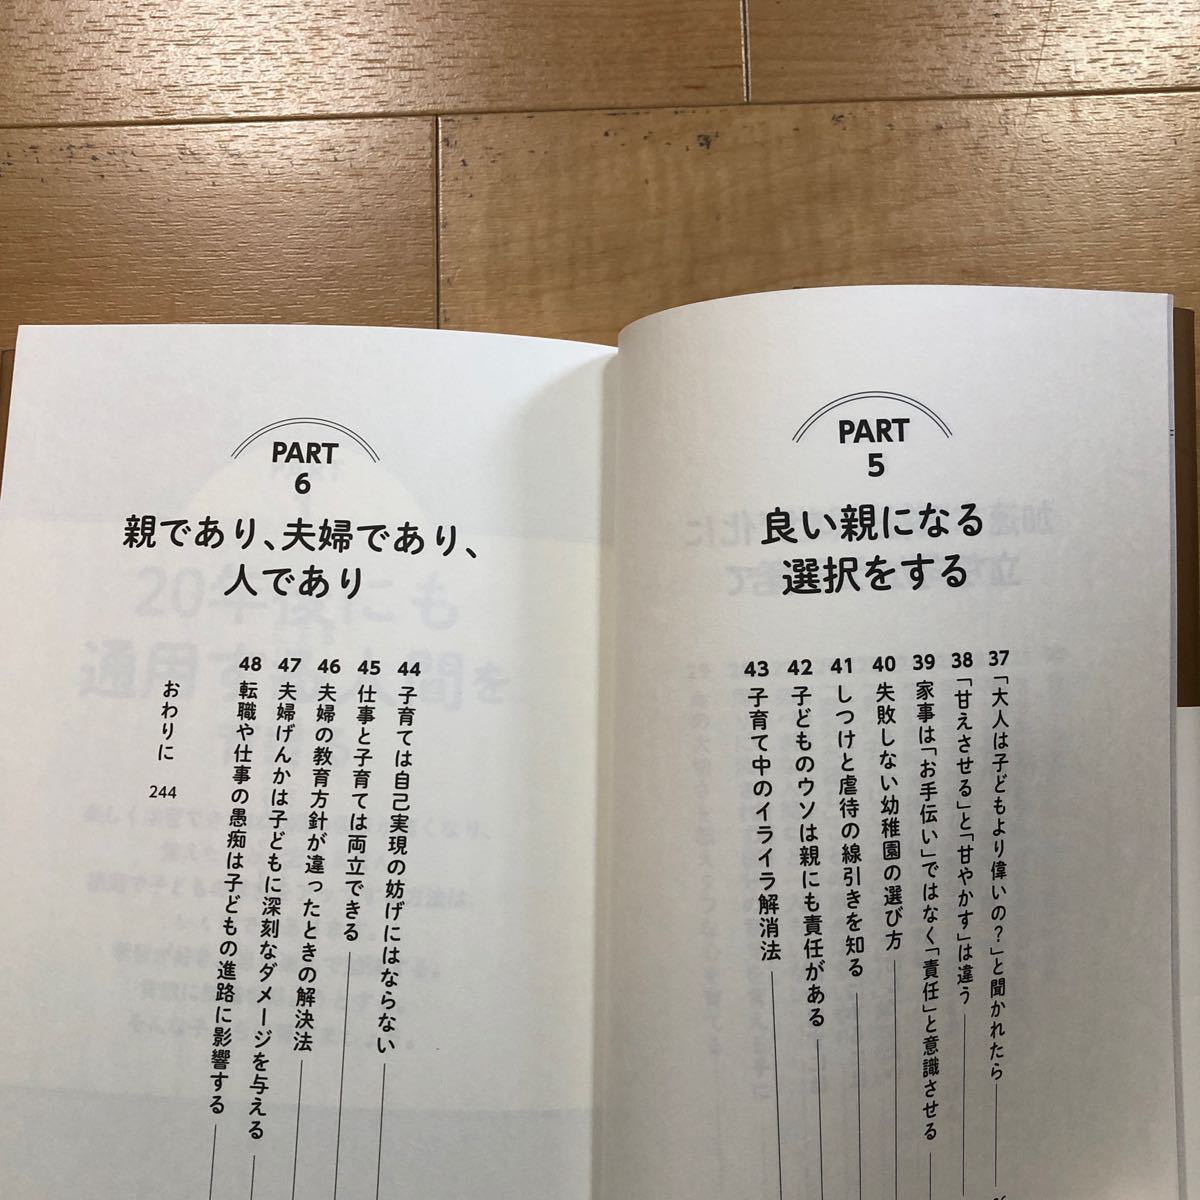 PART
5
良い親になる
選択をする
37 「大人は子どもより偉いの？」と聞かれたら
38 「甘えさせる」と「甘やかす」は違う
39 家事は「お手伝い」ではなく「責任」と意識させる
40 失敗しない幼稚園の選び方
41 しつけと虐待の線引きを知る
42 子どものウソは親にも責任がある
43 子育て中のイライラ解消法
PART
6
親であり、夫婦であり、
人であり
44 子育ては自己実現の妨げにはならない
45 仕事と子育ては両立できる
46 夫婦の教育方針が違ったときの解決法
47 夫婦げんかは子どもに深刻なダメージを与える
48 転職や仕事の愚痴は子どもの進路に影響する
おわりに 244